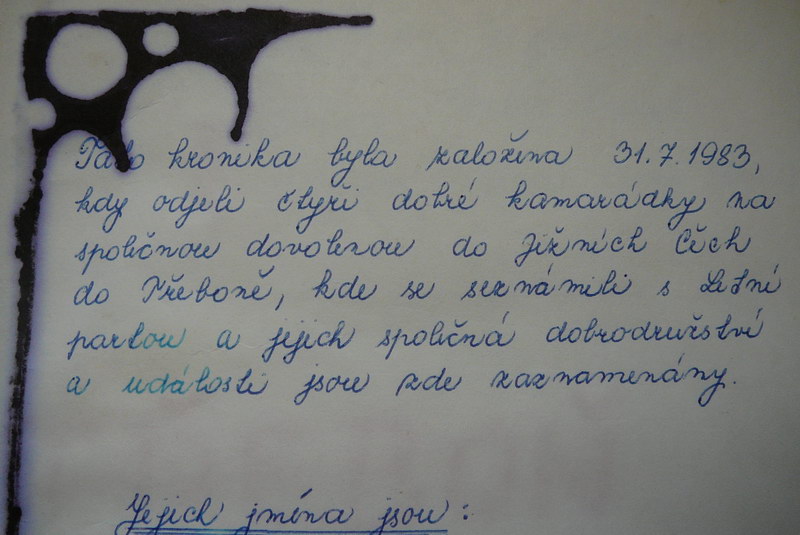 Tato kronika byla založena 31.7.1983,
kdy odjeli čtyři dobré kamarádky na
společnou dovolenou do Jižních Čech
do Třeboně, kde se seznámili s Letní
partou a jejich společná dobrodružství
a události jsou zde zaznamenány.
Jejich jména jsou: